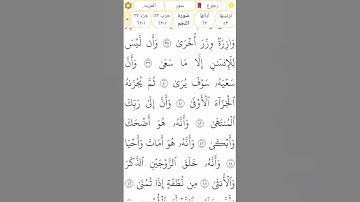 رجوع سور المزيد..
ترتيبها آياتها سُورَة حزب ٥٣ جزء ٢٧
٥٣ ٦٢ النجم ١-٦٢ ١-٦٢
وَازِرَةٌ وِزْرَ أُخْرَىٰ ٣٨ وَأَن لَّيْسَ
لِلْإِنسَٰنِ إِلَّا مَا سَعَىٰ ٣٩ وَأَنَّ
سَعْيَهُۥ سَوْفَ يُرَىٰ ٤٠ ثُمَّ يُجْزَىٰهُ
ٱلْجَزَآءَ ٱلْأَوْفَىٰ ٤١ وَأَنَّ إِلَىٰ رَبِّكَ
ٱلْمُنتَهَىٰ ٤٢ وَأَنَّهُۥ هُوَ أَضْحَكَ
وَأَبْكَىٰ ٤٣ وَأَنَّهُۥ هُوَ أَمَاتَ وَأَحْيَا
٤٤ وَأَنَّهُۥ خَلَقَ ٱلزَّوْجَيْنِ ٱلذَّكَرَ
وَٱلْأُنثَىٰ ٤٥ مِن نُّطْفَةٍ إِذَا تُمْنَىٰ ٤٦